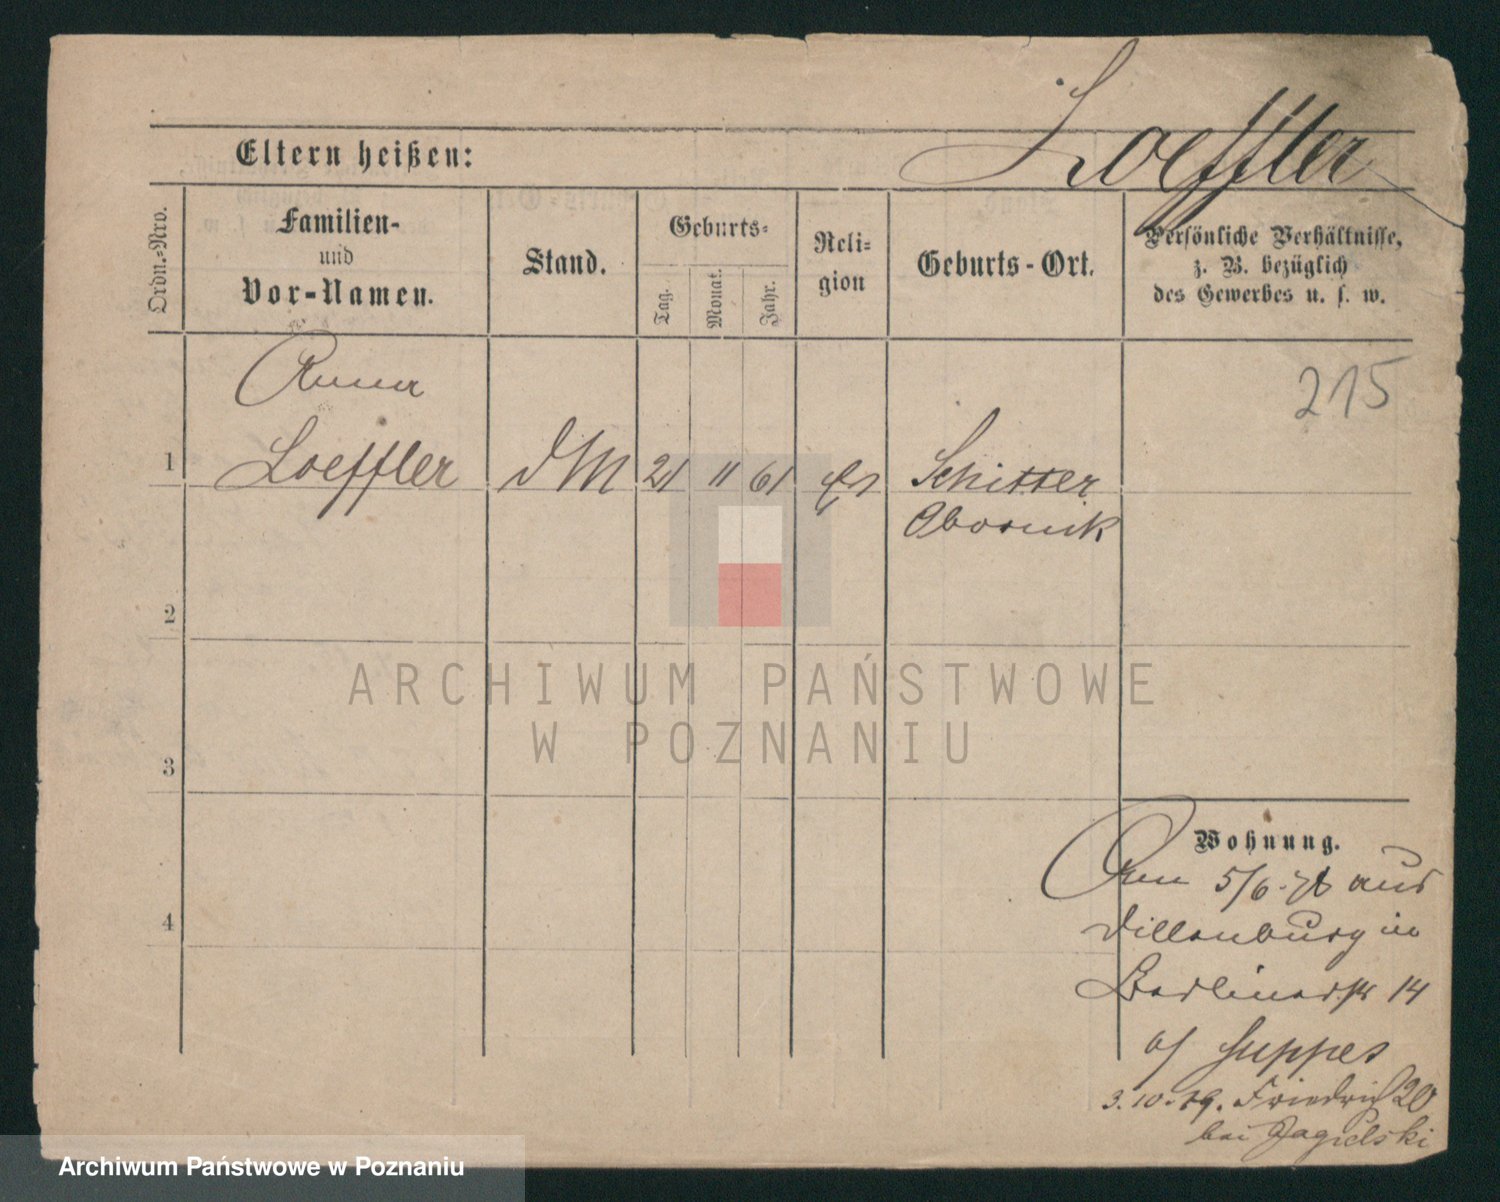 Loeffler
Eltern heißen:
Ordn.-Nro.
Familien-
und
Vor-Namen.
Stand.
Geburts-
Tag.
Monat.
Jahr.
Reli-
gion
Geburts-Ort.
Persönliche Verhältnisse,
z. B. bezüglich
des Gewerbes u. s. w.
Anna
215
1
Loeffler
DM
21
11
61
Schitter
Obornik
2
ARCHIWUM PAŃSTWOWE
W POZNANIU
3
Wohnung.
5/6. aus
4
Dillenburg in
Berlinerstr 14
3.10.79. Friedrich 20
bei Jagielski
Archiwum Państwowe w Poznaniu